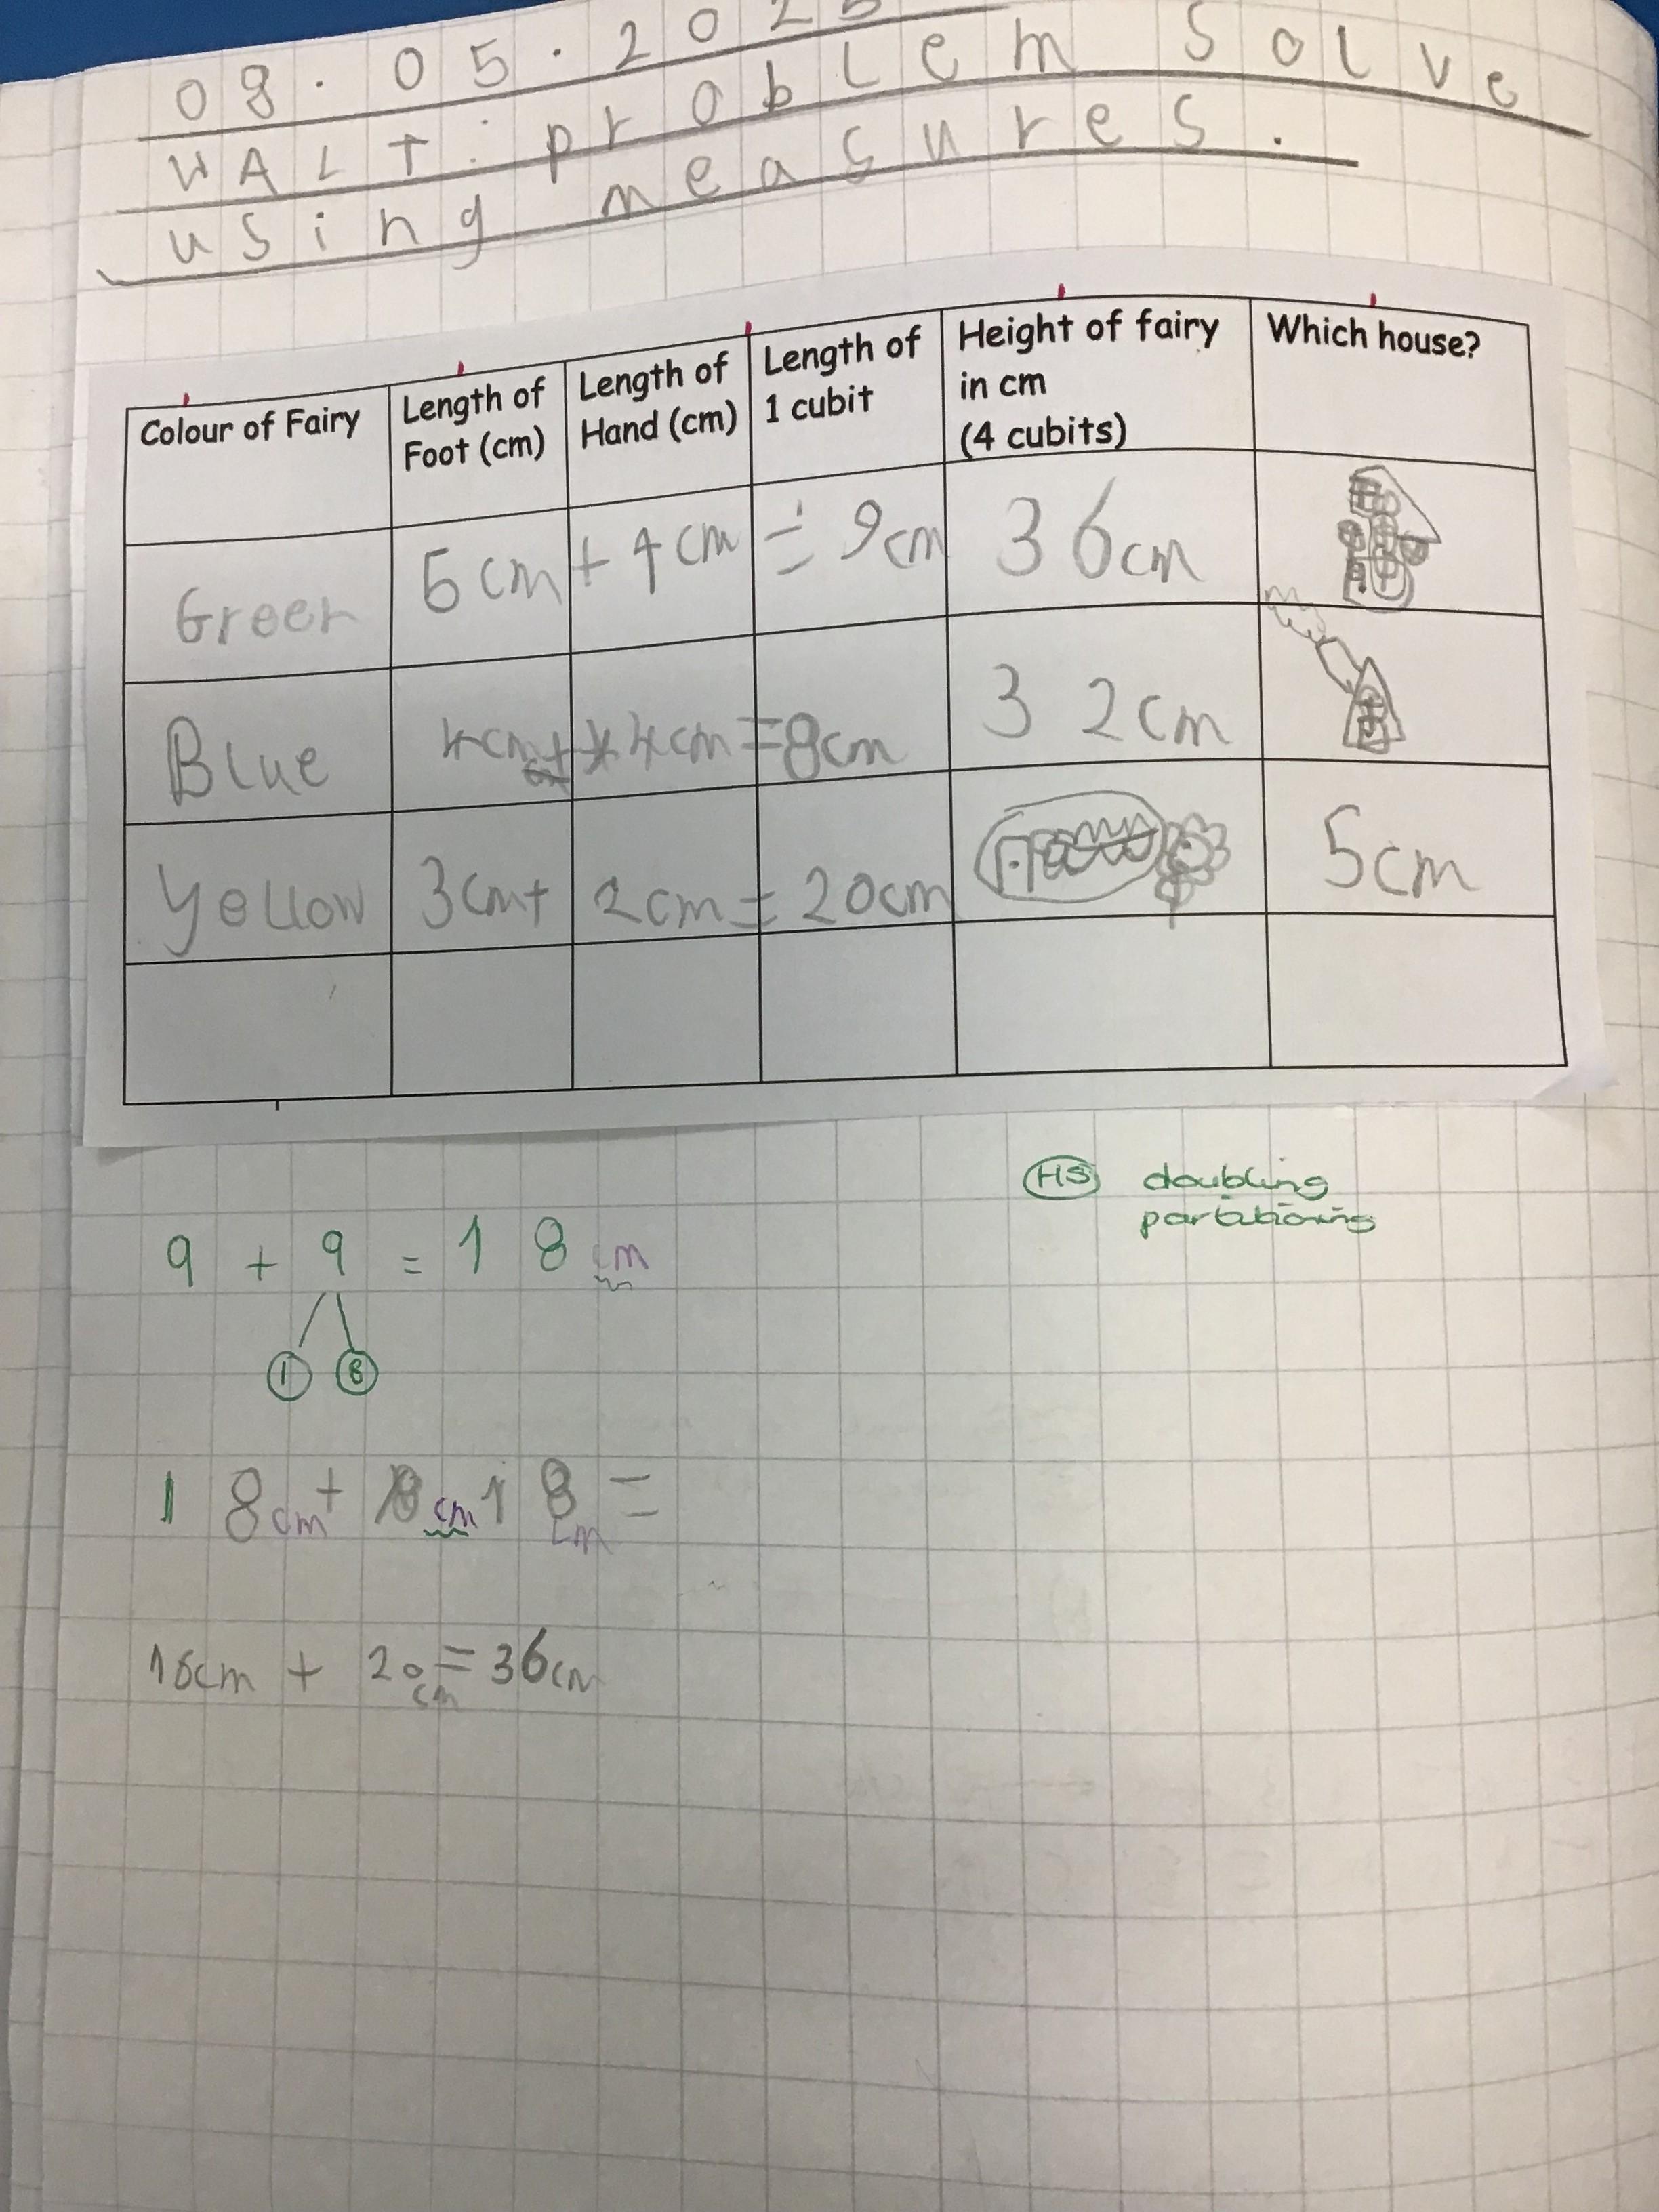 08.05.2025
WALT: problem solve
using measures.
Colour of Fairy
Length of
Foot (cm)
Length of
Hand (cm)
Length of
1 cubit
Height of fairy
in cm
(4 cubits)
Which house?
Green 5cm + 4cm = 9cm 36cm
Blue 4cm + 4cm = 8cm 32cm
Yellow 3cm + 2cm = 20cm 5cm
HS doubling
partitioning
9 + 9 = 18 cm
1 8
18cm + cm 18 =
cm
16cm + 20 = 36cm
cm